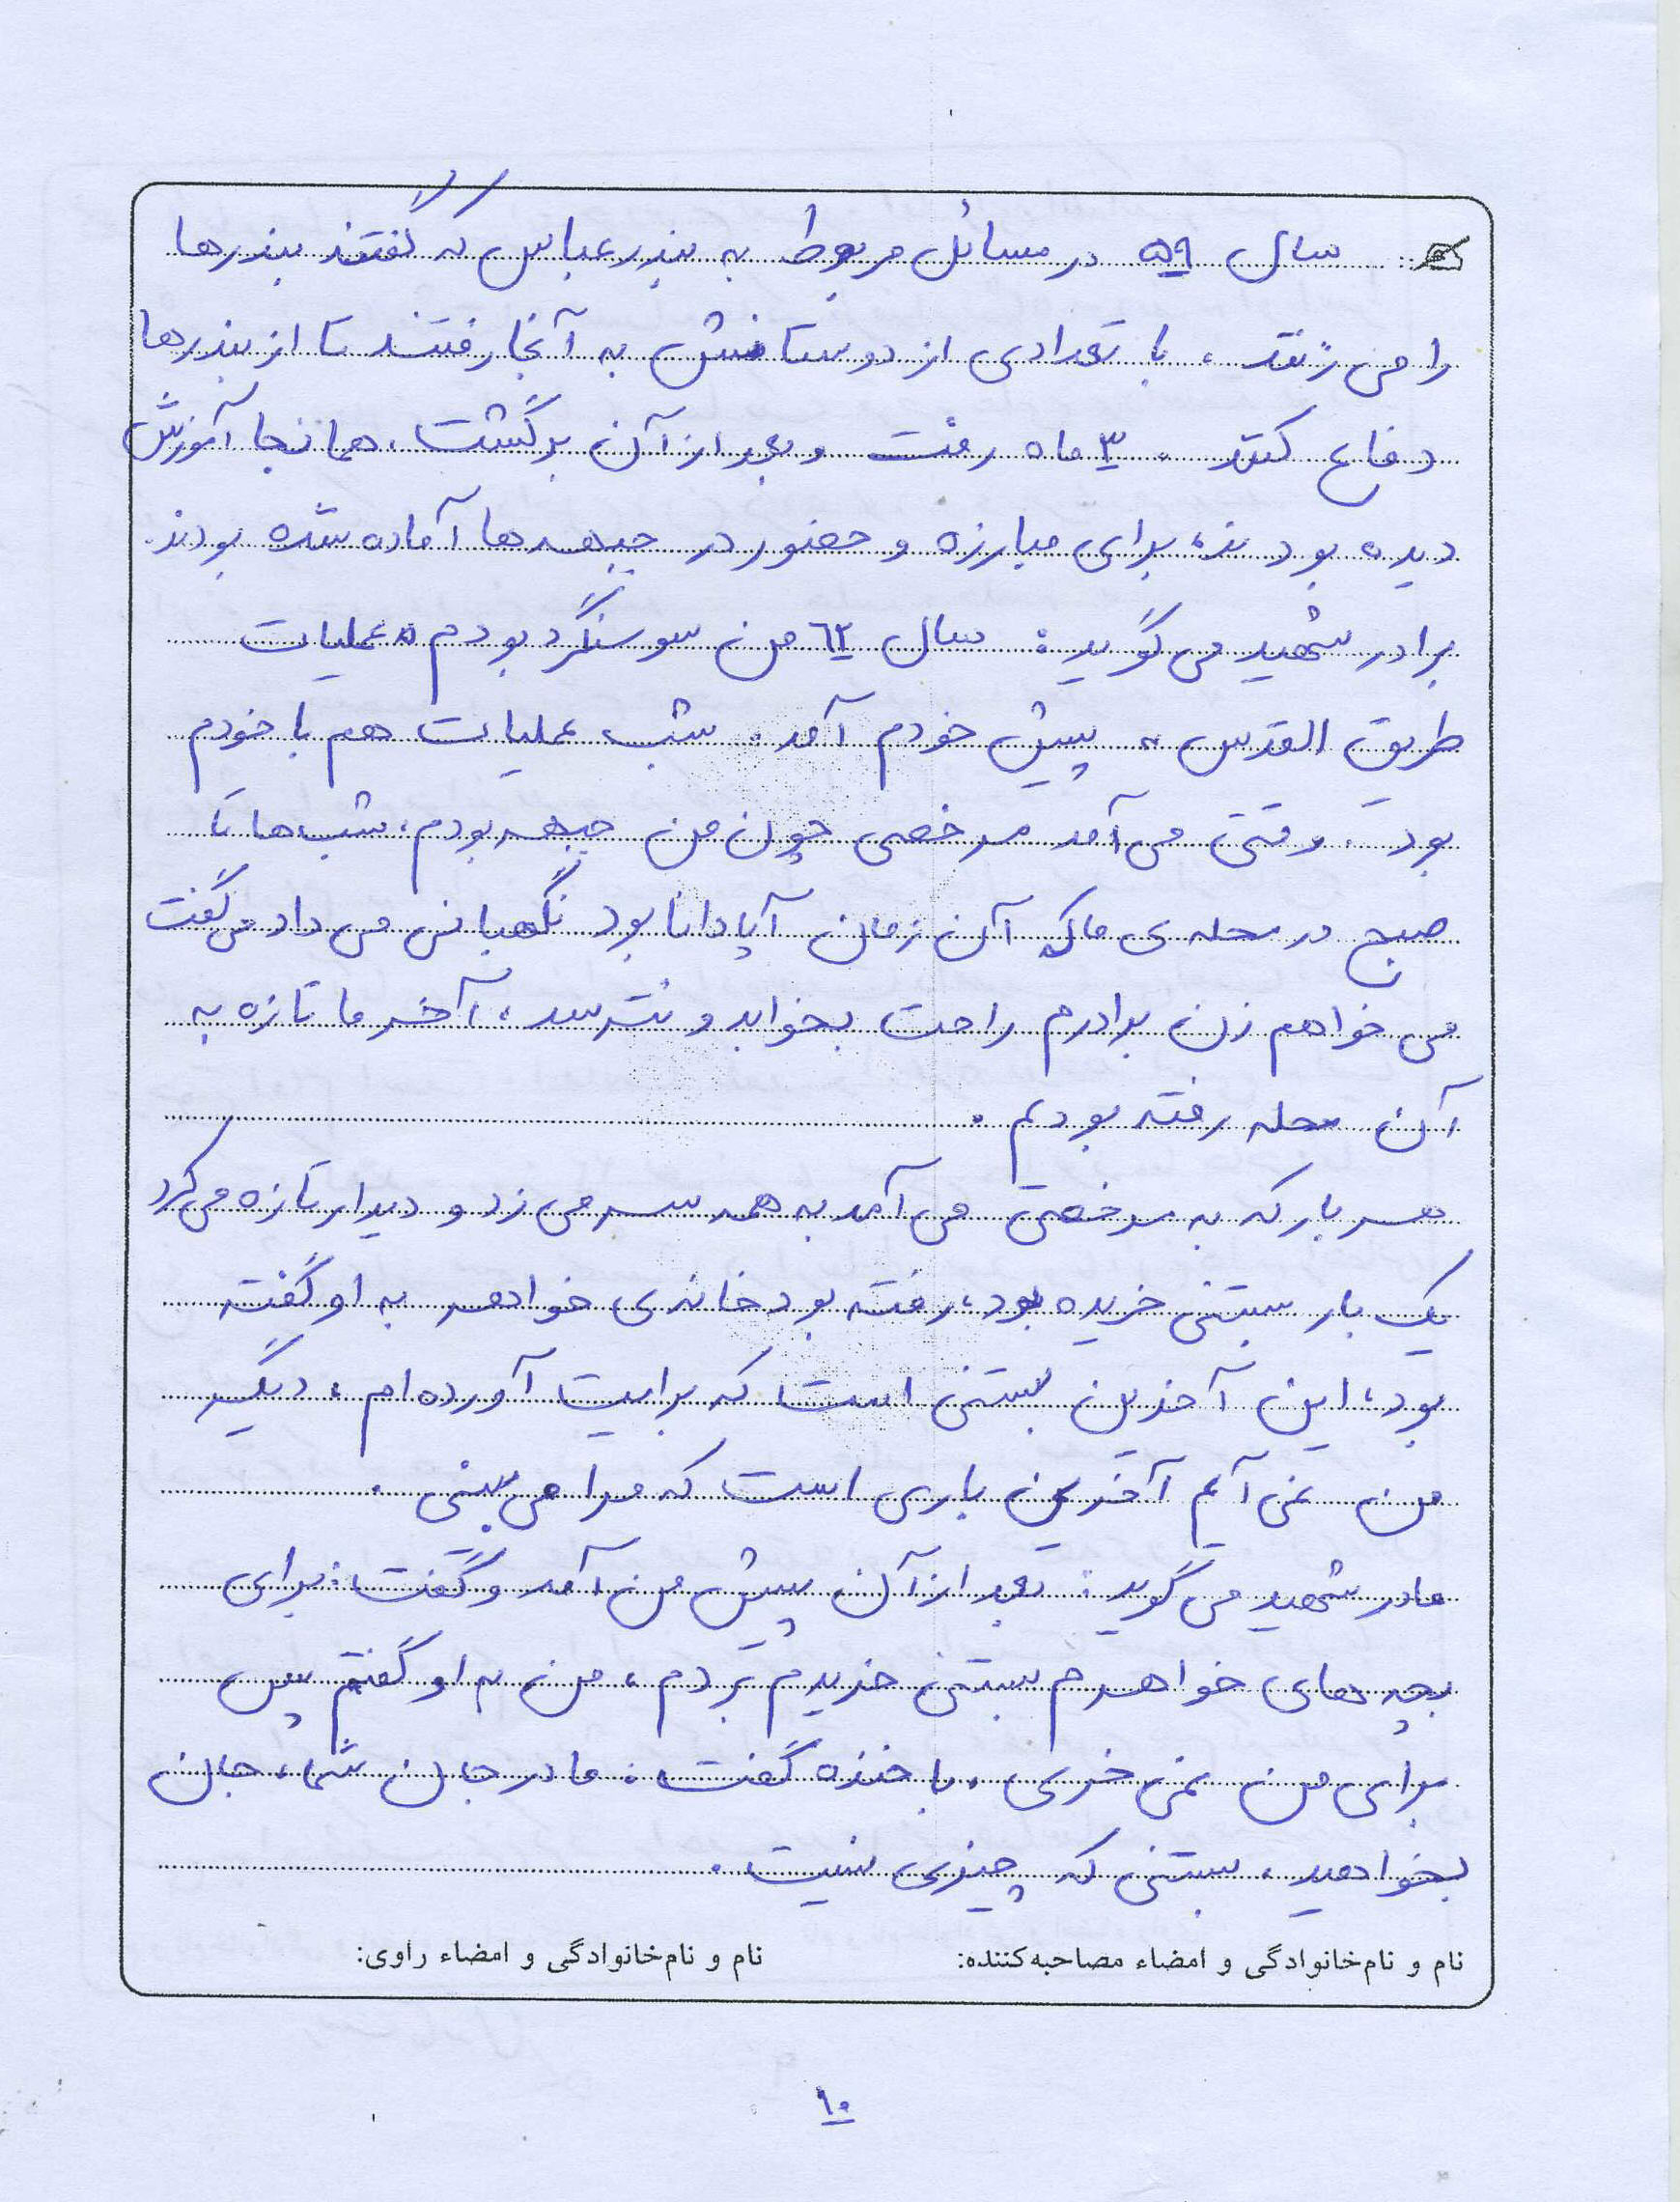 سال ۵۹ در مسائل مربوط به بندرعباس که گفتند بندرها
را می زنند ، با تعدادی از دوستانش به آنجا رفتند تا از بندرها
دفاع کنند . ۳ ماه رفت و بعد از آن برگشت ، همانجا آموزش
دیده بودند ، برای مبارزه و حضور در جبهه ها آماده شده بودند .
برادر شهید می گوید : سال ٦٢ من سوسنگرد بودم « عملیات
طریق القدس » پیش خودم آمد . شب عملیات هم با خودم
بود . وقتی می آمد مرخصی چون من جبهه بودم ، شب ها تا
صبح در محله ی ما که آن زمان آپادانا بود نگهبانی می داد می گفت
می خواهم زن برادرم راحت بخوابد و نترسد ، آخر ما تازه به
آن محله رفته بودیم .
هر بار که به مرخصی می آمد به همه سر می زد و دیدار تازه می کرد
یک بار بستنی خریده بود ، رفته بود خانه ی خواهر به او گفته
بود ، این آخرین بستنی است که برایت آورده ام ، دیگر
من نمی آیم آخرین باری است که مرا می بینی .
مادر شهید می گوید : بعد از آن پیش من آمد و گفت : برای
بچه های خواهرم بستنی خریدم بردم ، من به او گفتم پس
برای من نمی خری ، با خنده گفت : مادر جان شما ، جان
بخواهید ، بستنی که چیزی نیست .
نام و نام‌خانوادگی و امضاء مصاحبه‌کننده: نام و نام‌خانوادگی و امضاء راوی:
۱۰